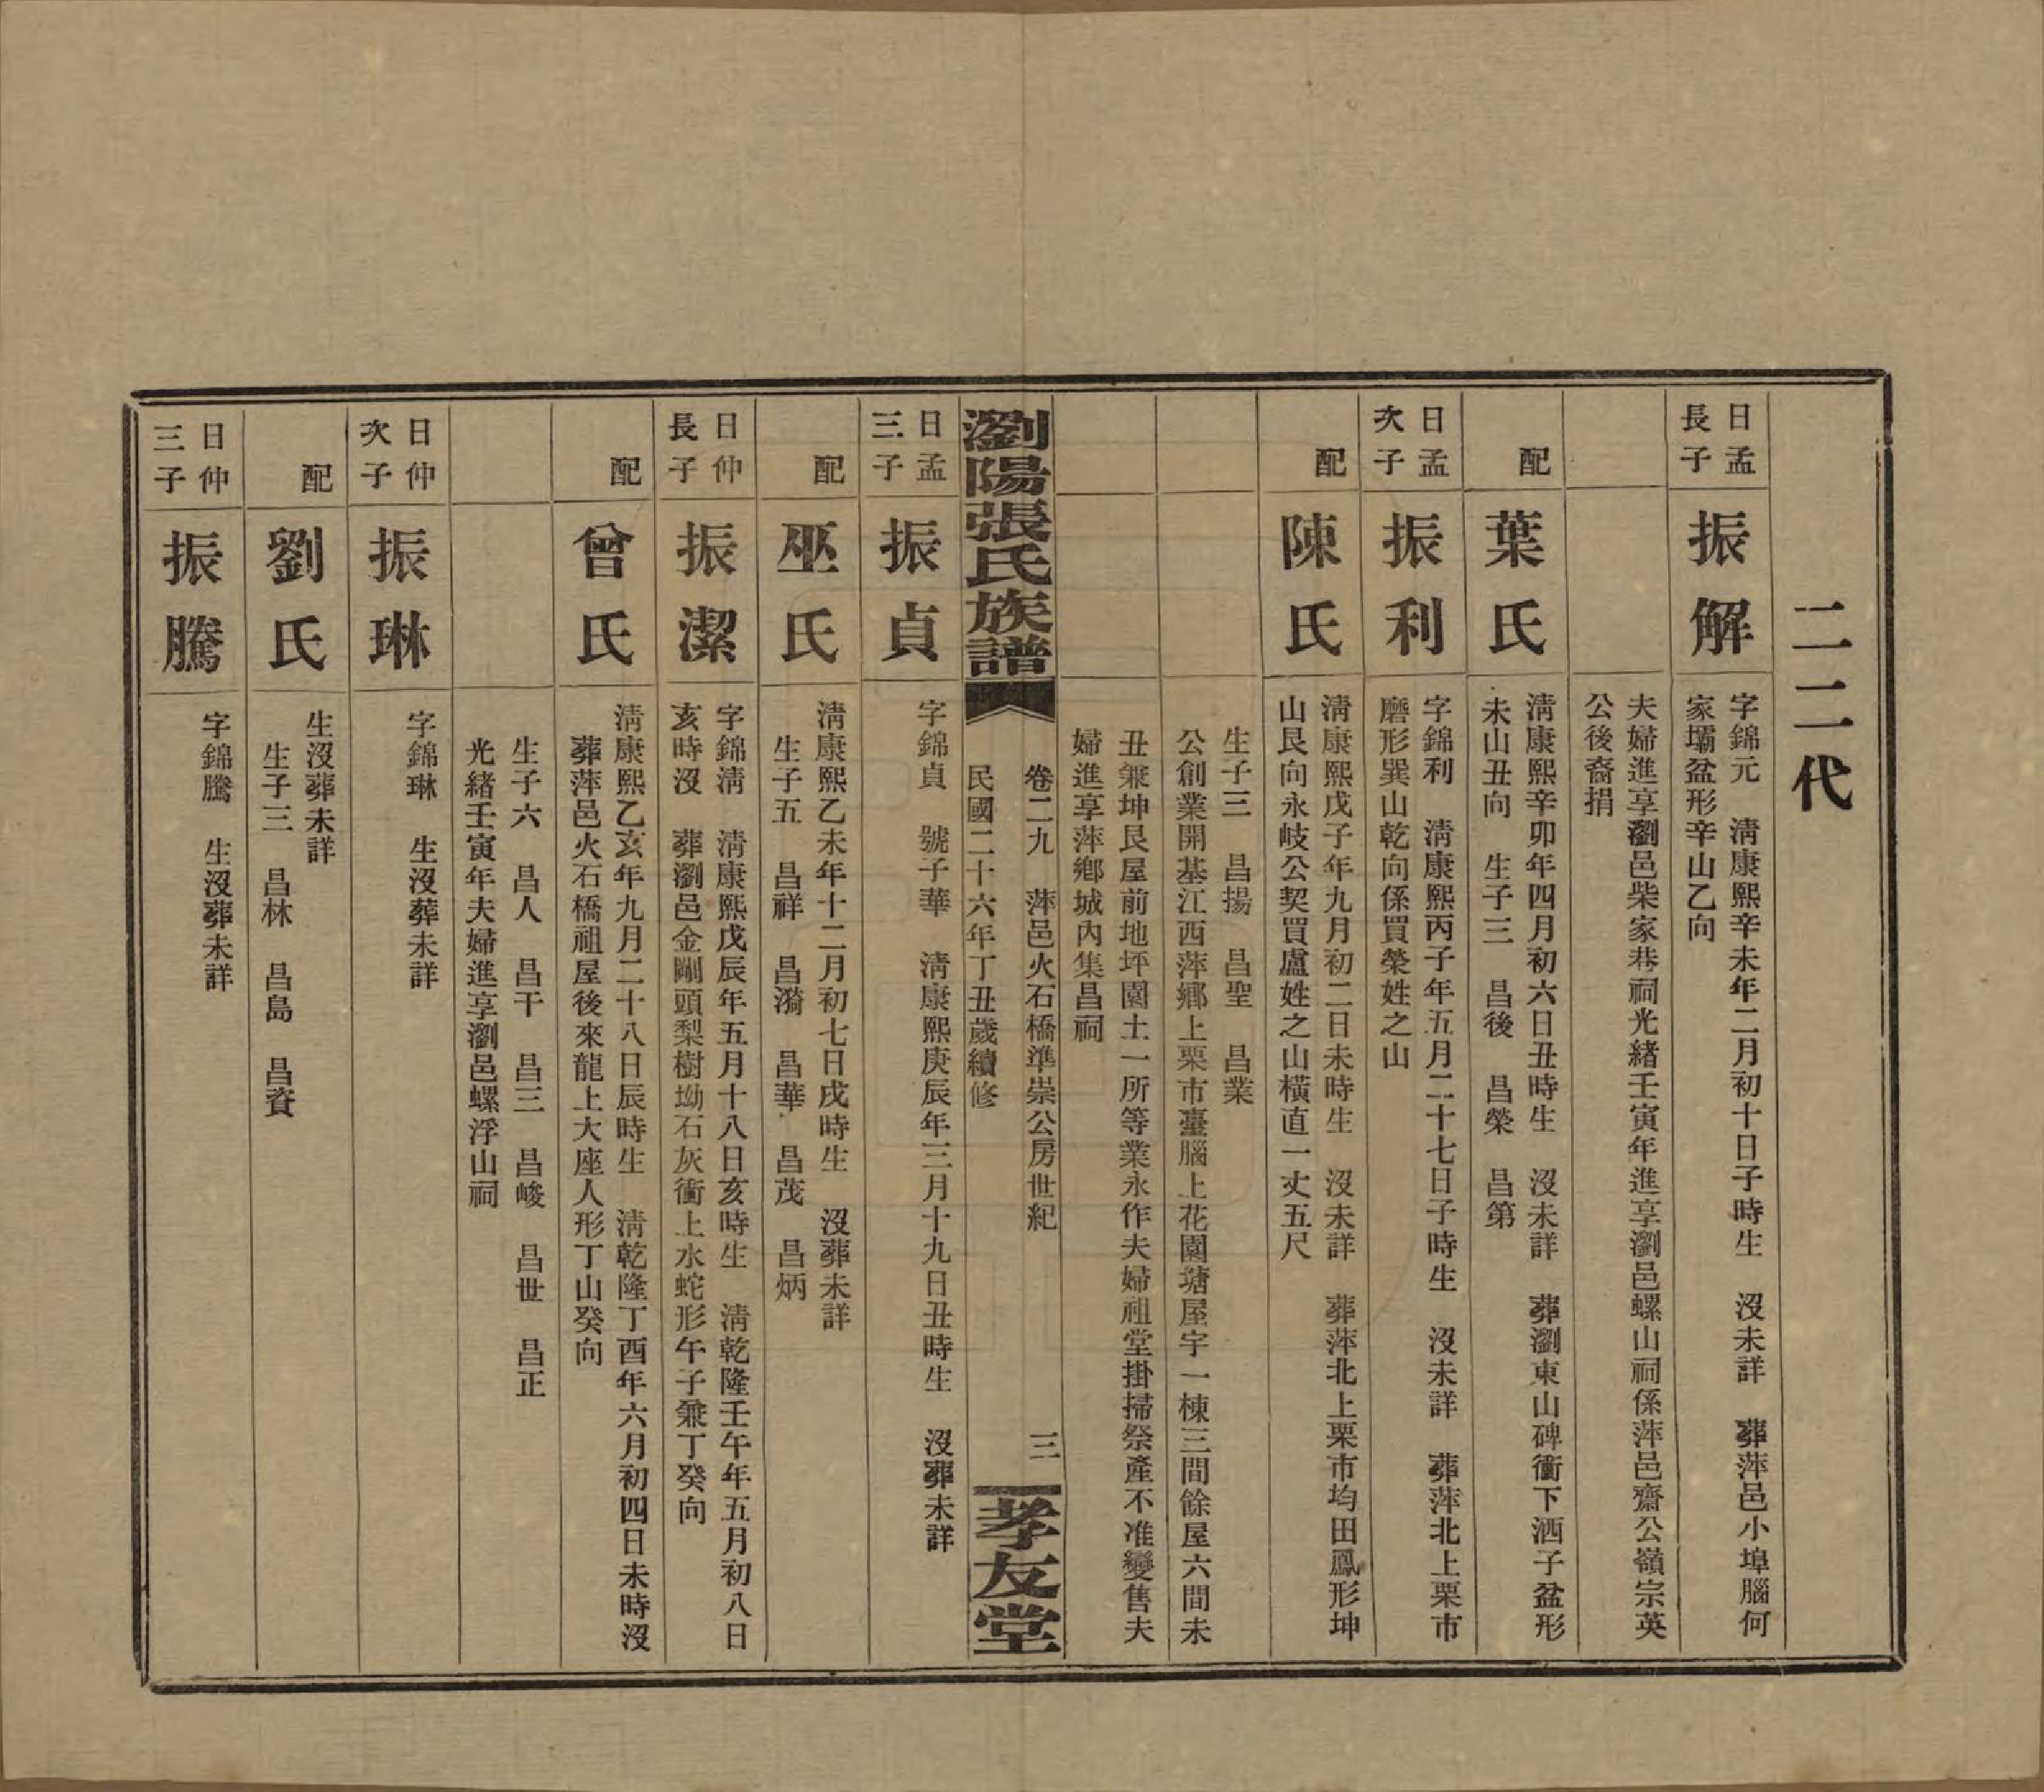 二二代
日孟
長子
振解
字錦元　淸康熙辛未年二月初十日子時生　沒未詳　葬萍邑小埠腦何
家壩盆形辛山乙向
夫婦進享瀏邑柴家巷祠光緒壬寅年進享瀏邑螺山祠係萍邑齋公嶺宗英
公後裔捐
配
葉氏
淸康熙辛卯年四月初六日丑時生　沒未詳　葬瀏東山碑衝下洒子盆形
未山丑向　生子三　昌後　昌榮　昌第
日孟
次子
振利
字錦利　淸康熙丙子年五月二十七日子時生　沒未詳　葬萍北上栗市
磨形巽山乾向係買榮姓之山
配
陳氏
淸康熙戊子年九月初二日未時生　沒未詳　葬萍北上栗市均田鳳形坤
山艮向永岐公契買盧姓之山橫直一丈五尺
生子三　昌揚　昌聖　昌業
公創業開基江西萍鄉上栗市臺腦上花園塘屋宇一棟三間餘屋六間未
丑兼坤艮屋前地坪園土一所等業永作夫婦祖堂掛掃祭產不准變售夫
婦進享萍鄉城內集昌祠
瀏陽張氏族譜
卷二九　萍邑火石橋準崇公房世紀　三
民國二十六年丁丑歲續修
孝友堂
日孟
三子
振貞
字錦貞　號子華　淸康熙庚辰年三月十九日丑時生　沒葬未詳
配
巫氏
淸康熙乙未年十二月初七日戌時生　沒葬未詳
生子五　昌祥　昌漪　昌華　昌茂　昌炳
日仲
長子
振潔
字錦淸　淸康熙戊辰年五月十八日亥時生　淸乾隆壬午年五月初八日
亥時沒　葬瀏邑金剛頭梨樹坳石灰衝上水蛇形午子兼丁癸向
配
曾氏
淸康熙乙亥年九月二十八日辰時生　淸乾隆丁酉年六月初四日未時沒
葬萍邑火石橋祖屋後來龍上大座人形丁山癸向
生子六　昌人　昌干　昌三　昌峻　昌世　昌正
光緒壬寅年夫婦進享瀏邑螺浮山祠
日仲
次子
振琳
字錦琳　生沒葬未詳
配
劉氏
生沒葬未詳
生子三　昌林　昌島　昌資
日仲
三子
振騰
字錦騰　生沒葬未詳